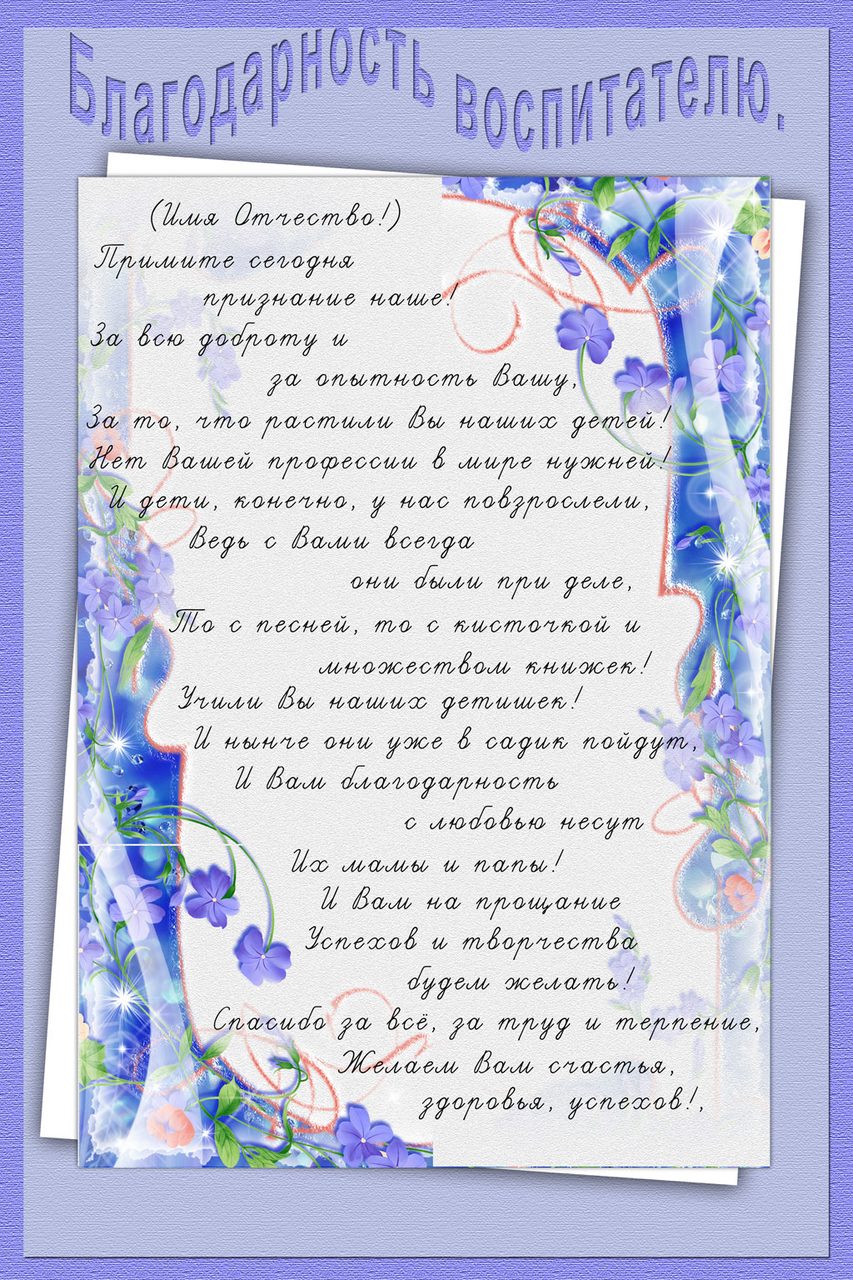 Благодарность воспитателю.
(Имя Отчество!)
Примите сегодня
признание наше!
За всю доброту и
за опытность Вашу,
За то, что растили Вы наших детей!
Нет Вашей профессии в мире нужней!
И дети, конечно, у нас повзрослели,
Ведь с Вами всегда
они были при деле,
То с песней, то с кисточкой и
множеством книжек!
Учили Вы наших детишек!
И нынче они уже в садик пойдут,
И Вам благодарность
с любовью несут
Их мамы и папы!
И Вам на прощание
Успехов и творчества
будем желать!
Спасибо за всё, за труд и терпение,
Желаем Вам счастья,
здоровья, успехов!,